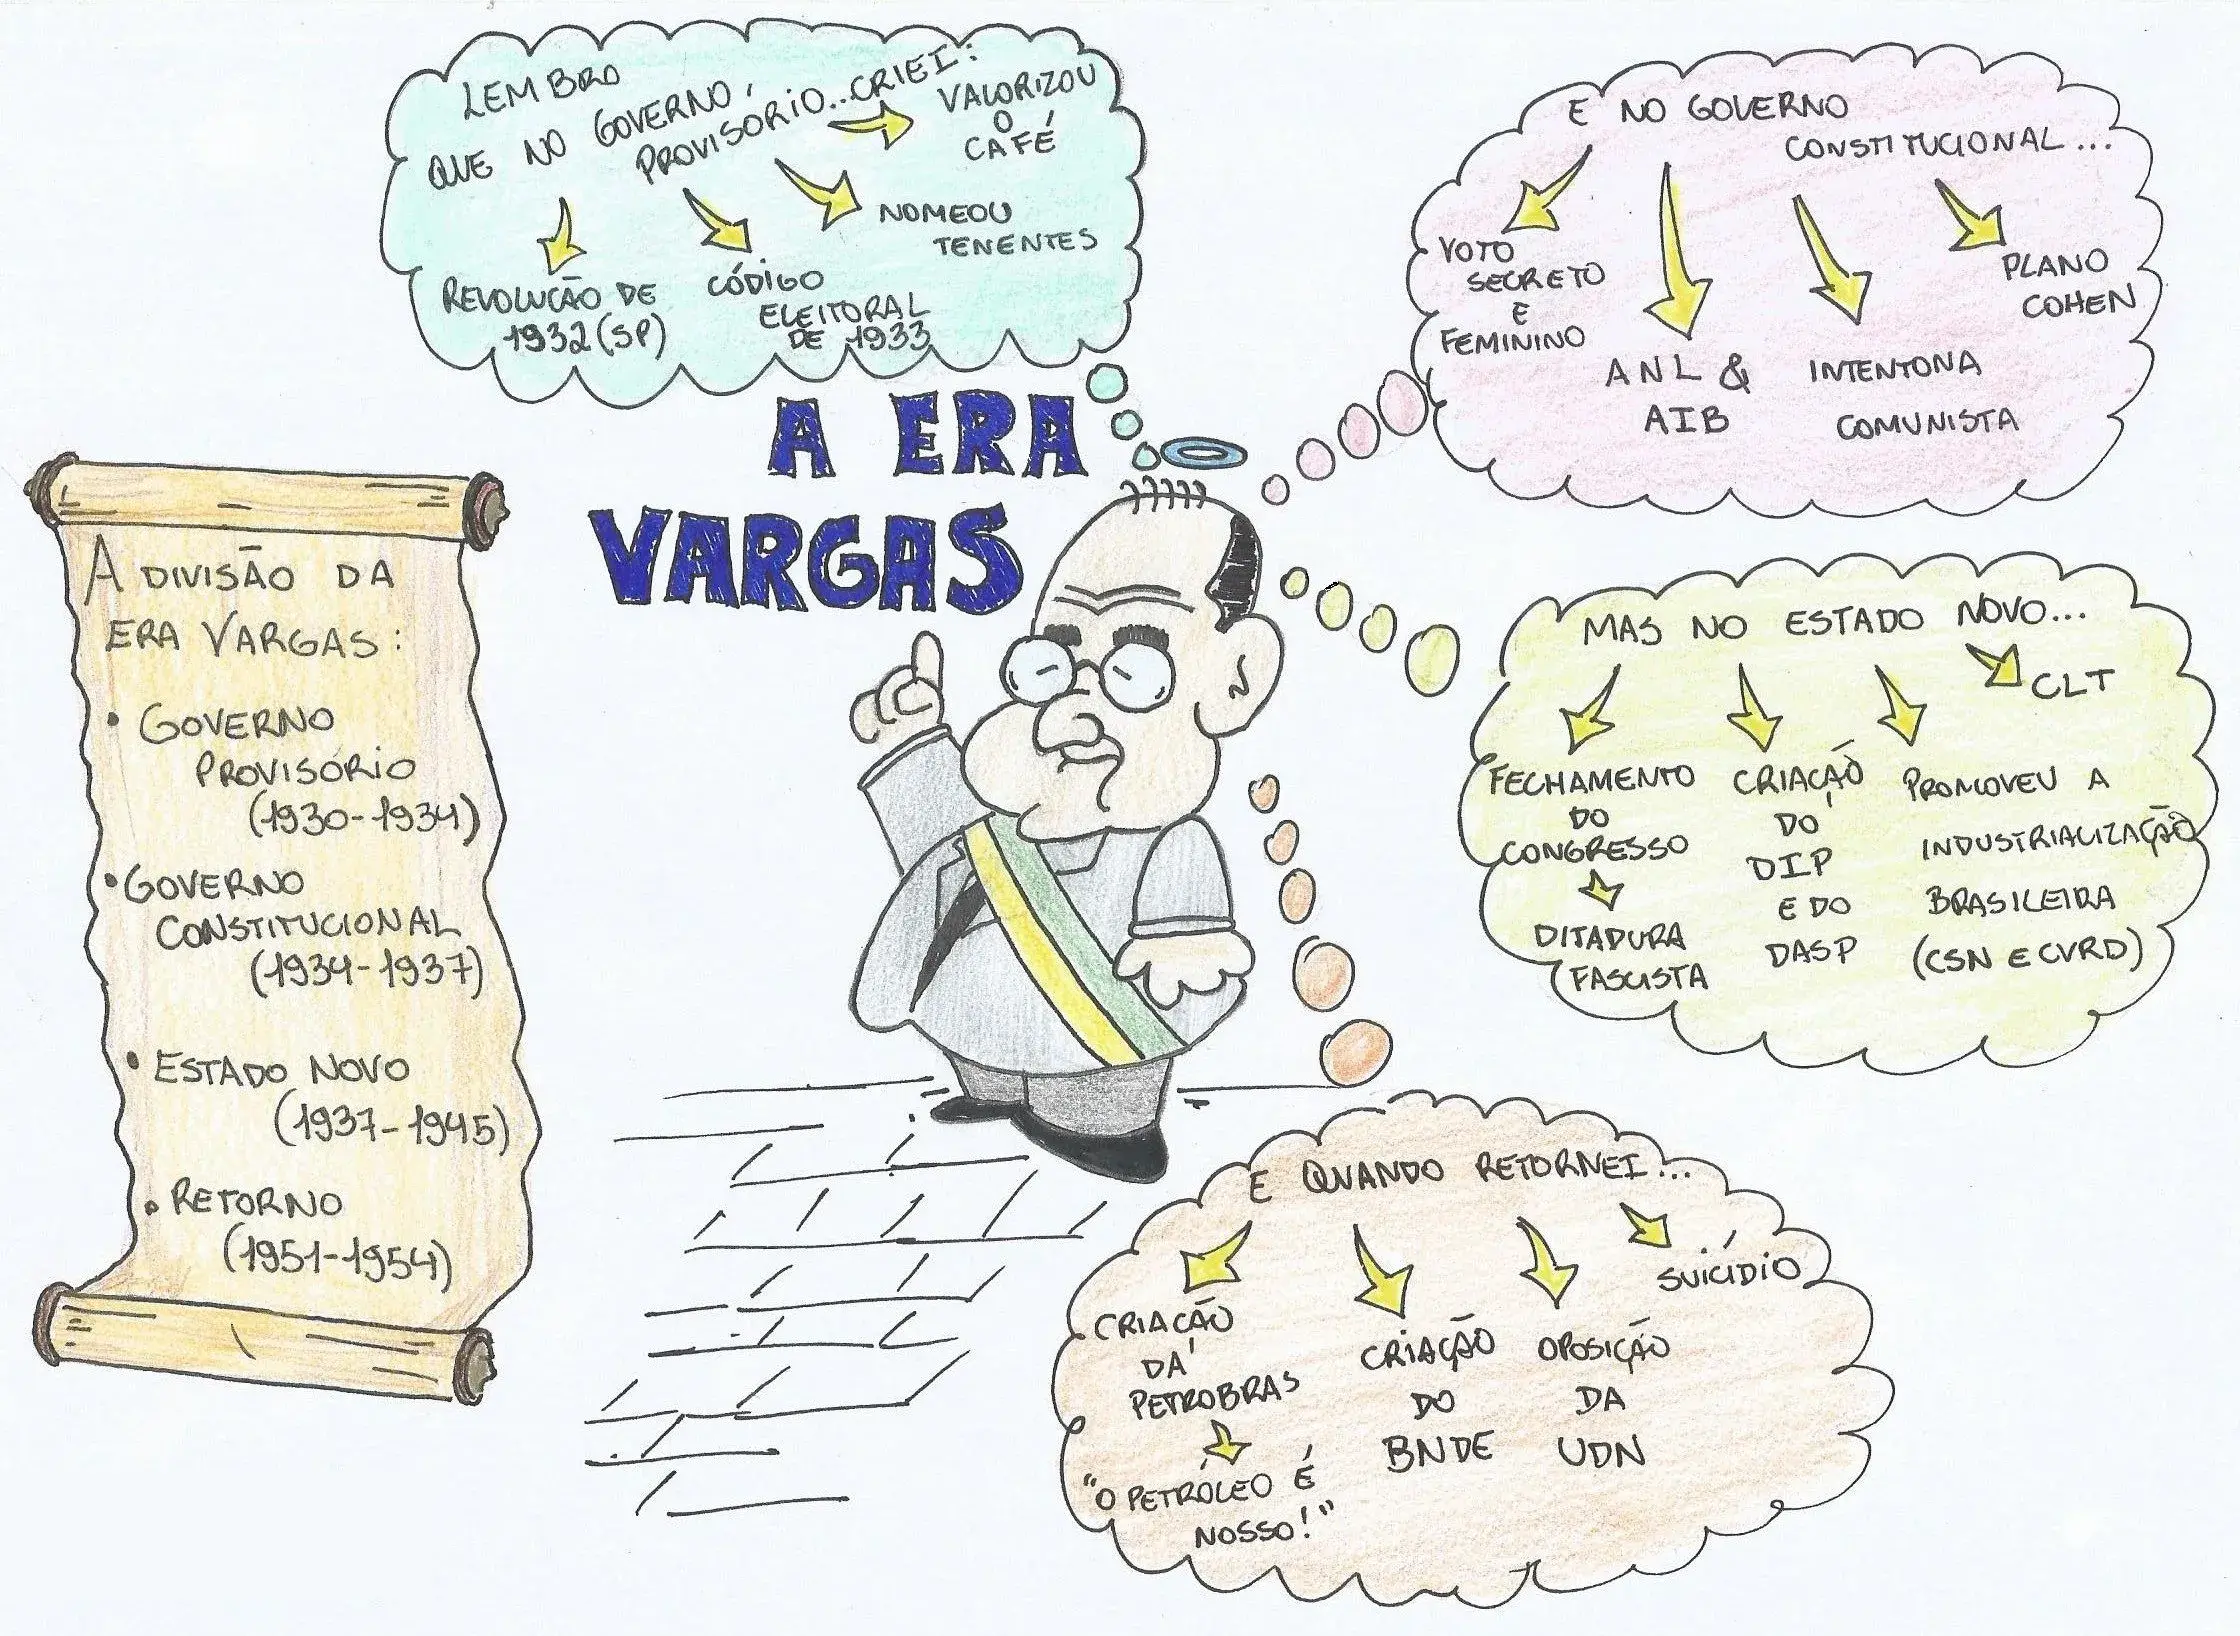 LEMBRO
QUE NO GOVERNO,
PROVISÓRIO...CRIEI:
VALORIZOU
O
CAFÉ
NOMEOU
TENENTES
CÓDIGO
ELEITORAL
DE 1933
REVOLUÇÃO DE
1932 (SP)
E NO GOVERNO
CONSTITUCIONAL...
VOTO
SECRETO
E
FEMININO
ANL &
AIB
INTENTONA
COMUNISTA
PLANO
COHEN
A ERA
VARGAS
A DIVISÃO DA
ERA VARGAS:
• GOVERNO
PROVISÓRIO
(1930-1934)
• GOVERNO
CONSTITUCIONAL
(1934-1937)
• ESTADO NOVO
(1937-1945)
• RETORNO
(1951-1954)
MAS NO ESTADO NOVO...
FECHAMENTO
DO
CONGRESSO
DITADURA
FASCISTA
CRIAÇÃO
DO
DIP
E DO
DASP
PROMOVEU A
INDUSTRIALIZAÇÃO
BRASILEIRA
(CSN E CVRD)
CLT
E QUANDO RETORNEI...
CRIAÇÃO
DA
PETROBRAS
"O PETRÓLEO É
NOSSO!"
CRIAÇÃO
DO
BNDE
OPOSIÇÃO
DA
UDN
SUICÍDIO